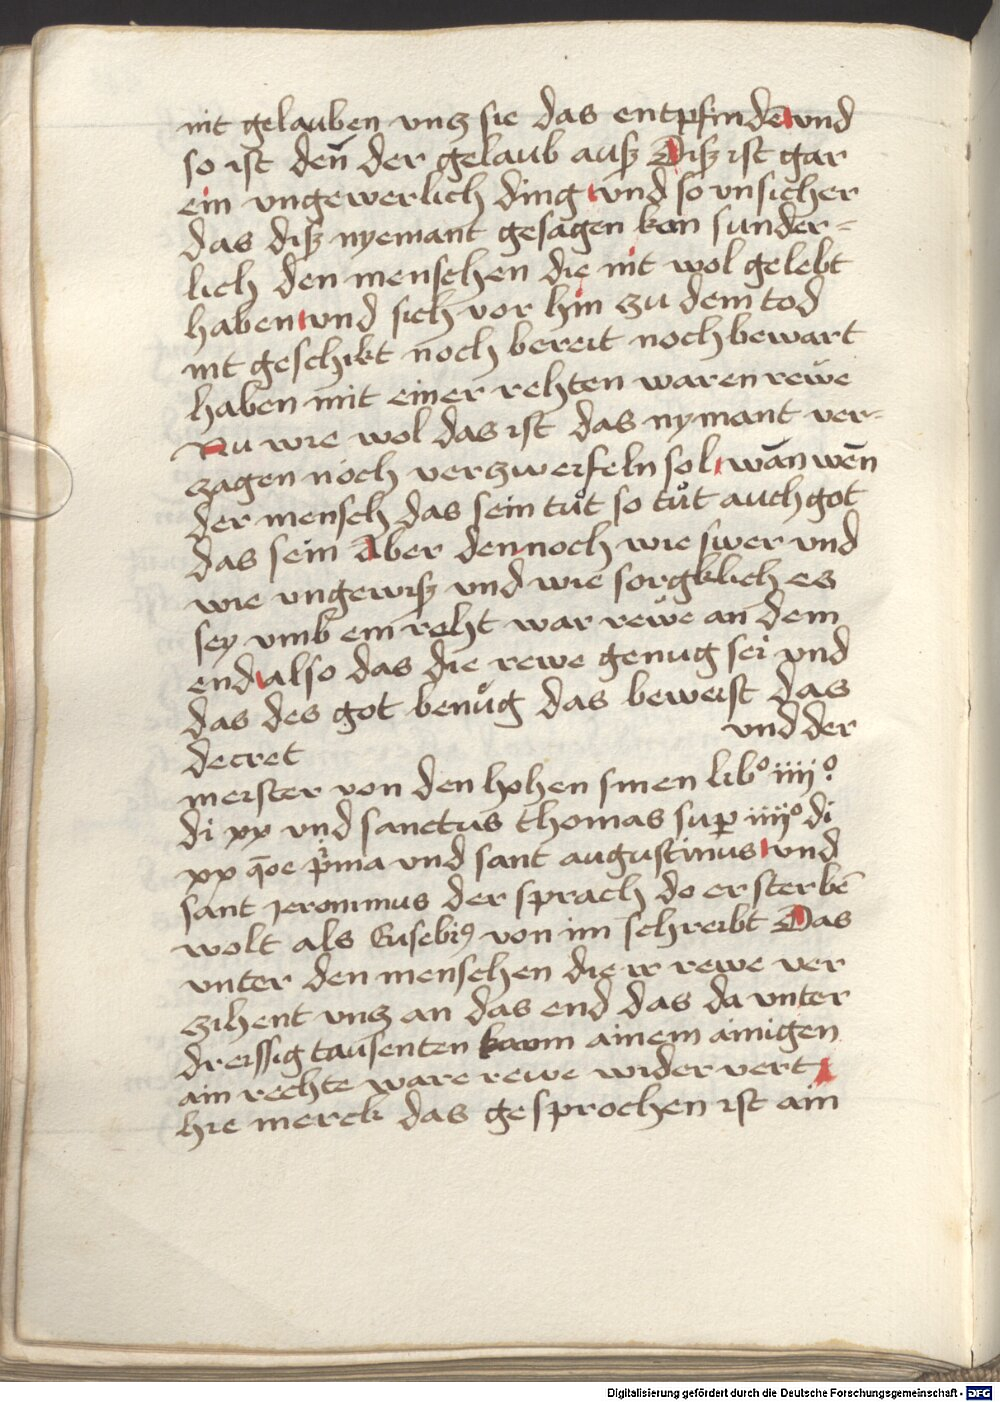 nit gelauben vnz sie das entpfindē vnd
so ist den̄ der gelaub ausz Disz ist gar
ein vngewerlich ding vnd so vnsicher
das disz nyemant gesagen kan sunder-
lich den menschen die nit wol gelebt
haben vnd sich vor hin zu dem tod
nit geschikt noch bereit noch bewart
haben mit einer rehten waren rewe
Nu wie wol das ist das nymant ver-
zagen noch verzweifeln sol wān wēn
der mensch das sein tůt so tůt auch got
das sein Aber dennoch wie swer vnd
wie vngewisz vnd wie sorgklich es
sey vmb ein reht war rewe an dem
end also das die rewe genug sei vnd
das des got benůg das beweist das
decret vnd der
meister von den hohen sinen libº iiijº
di xx vnd sanctus thomas sup iiijº di
xx q̄oe p̄ma vnd sant augustinus vnd
sant jeronimus der sprach do er sterbē
wolt als Eusebiꝰ von im schreibt Das
vnter den menschen die ir rewe ver
zihent vnz an das end das da vnter
dreissig tausenten kaum ainem ainigen
ain rechte ware rewe wider vert
hie merck das gesprochen ist ain
Digitalisierung gefördert durch die Deutsche Forschungsgemeinschaft - DFG